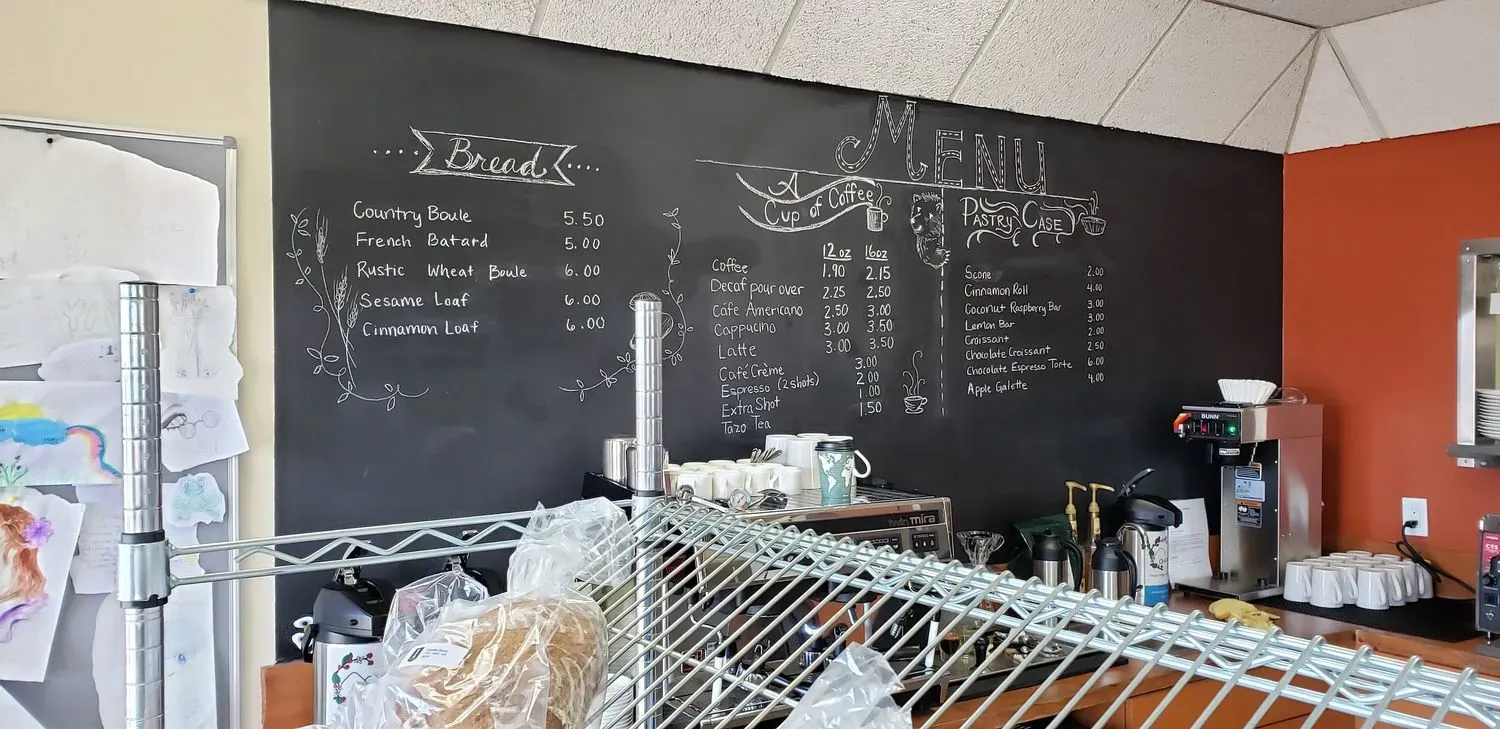 MENU
Bread
Country Boule 5.50
French Batard 5.00
Rustic Wheat Boule 6.00
Sesame Loaf 6.00
Cinnamon Loaf 6.00
A
Cup of Coffee
12oz 16oz
Coffee 1.90 2.15
Decaf pour over 2.25 2.50
Cáfe Americano 2.50 3.00
Cappucino 3.00 3.50
Latte 3.00 3.50
Café Crème 3.00
Espresso (2shots) 2.00
Extra Shot 1.00
Tazo Tea 1.50
PASTRY CASE
Scone 2.00
Cinnamon Roll 4.00
Coconut Raspberry Bar 3.00
Lemon Bar 3.00
Croissant 2.00
Chocolate Croissant 2.50
Chocolate Espresso Torte 6.00
Apple Galette 4.00
BUNN
twin mira